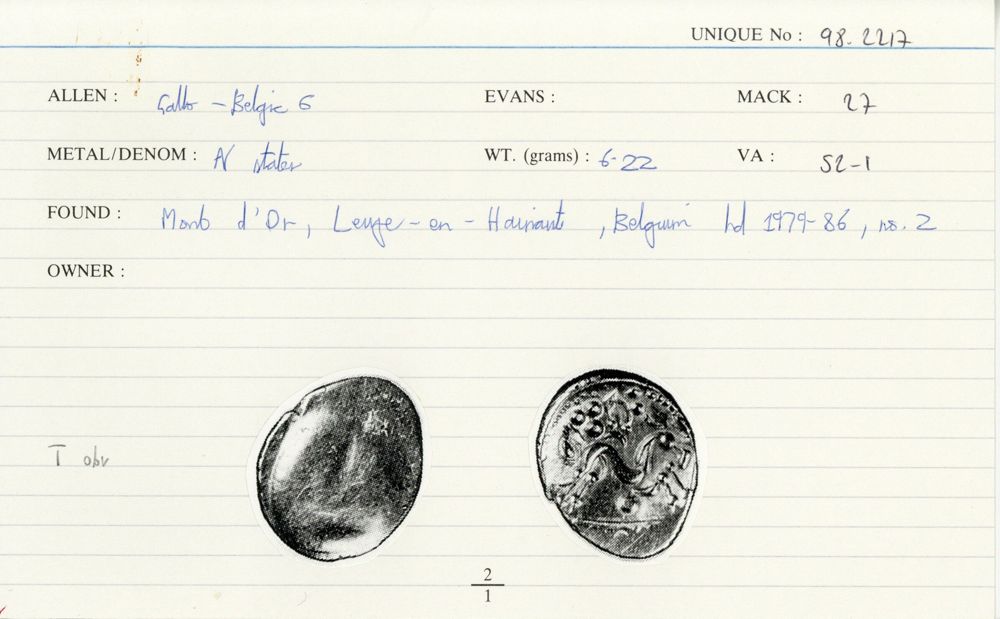 UNIQUE No : 98.2217
ALLEN : Gallo-Belgic G EVANS : MACK : 27
METAL/DENOM : AV stater WT. (grams) : 6.22 VA : 52-1
FOUND : Mont d'Or, Leuze-en-Hainaut, Belgium hd 1979-86, no. 2
OWNER :
T obv
2
1